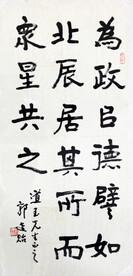 為政㠯德譬如
北辰居其所而
衆星共之
先生正之
郭